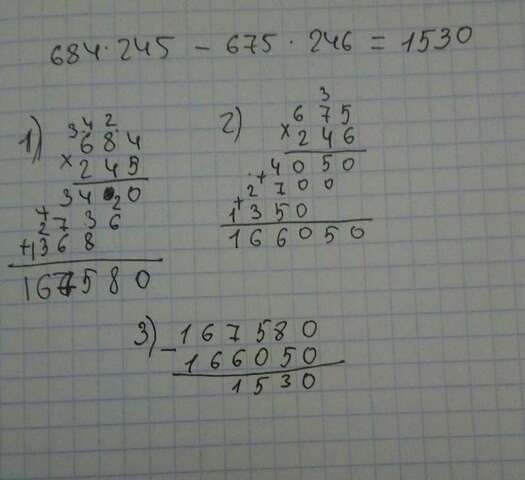 684·245 - 675·246 = 1530
1)
3 4 2
684
× 245
3420
+ 2736
+ 1368
167580
2)
3
675
× 246
4050
+ 2700
+ 1350
166050
3)
- 167580
166050
1530